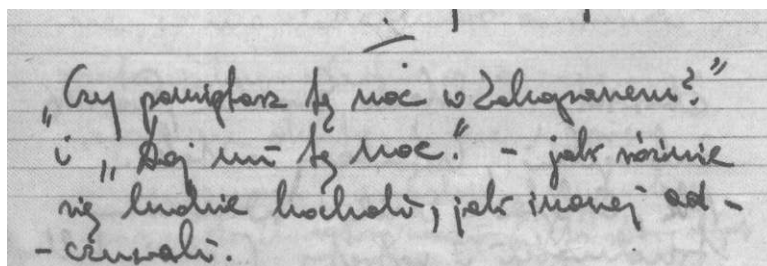 „Czy pamiętasz tę noc w Zakopanem?”
i „Daj mi tę noc.” – jak różnie
się ludzie kochali, jak inaczej od-
-czuwali.